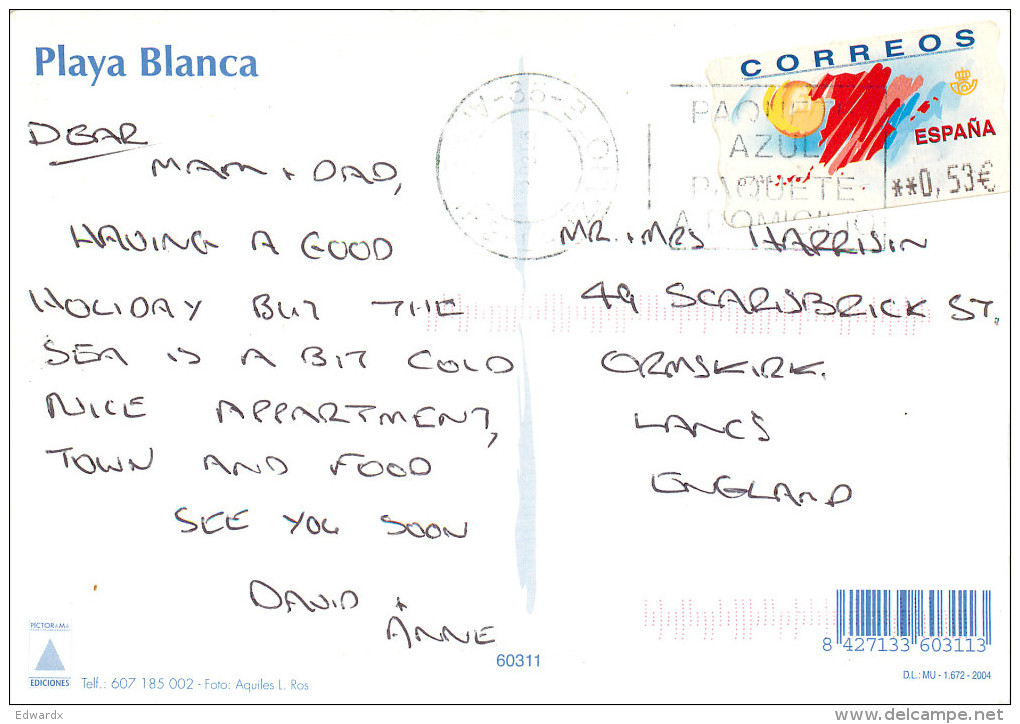 Playa Blanca
CORREOS
ESPAÑA
**0,53€
PAQUETE
AZUL
PAQUETE
A DOMICILIO
DEAR
MAM + DAD,
HAVING A GOOD
HOLIDAY BUT THE
SEA IS A BIT COLD
NICE APPARTMENT,
TOWN AND FOOD
SEE YOU SOON
DAVID +
ANNE
MR. + MRS HARRISIN
49 SCARISBRICK ST,
ORMSKIRK.
LANCS
ENGLAND
PICTORAMA
EDICIONES
Telf.: 607 185 002 - Foto: Aquiles L. Ros
60311
8 427133 603113
D.L.: MU - 1.672 - 2004
Edwardx
www.delcampe.net